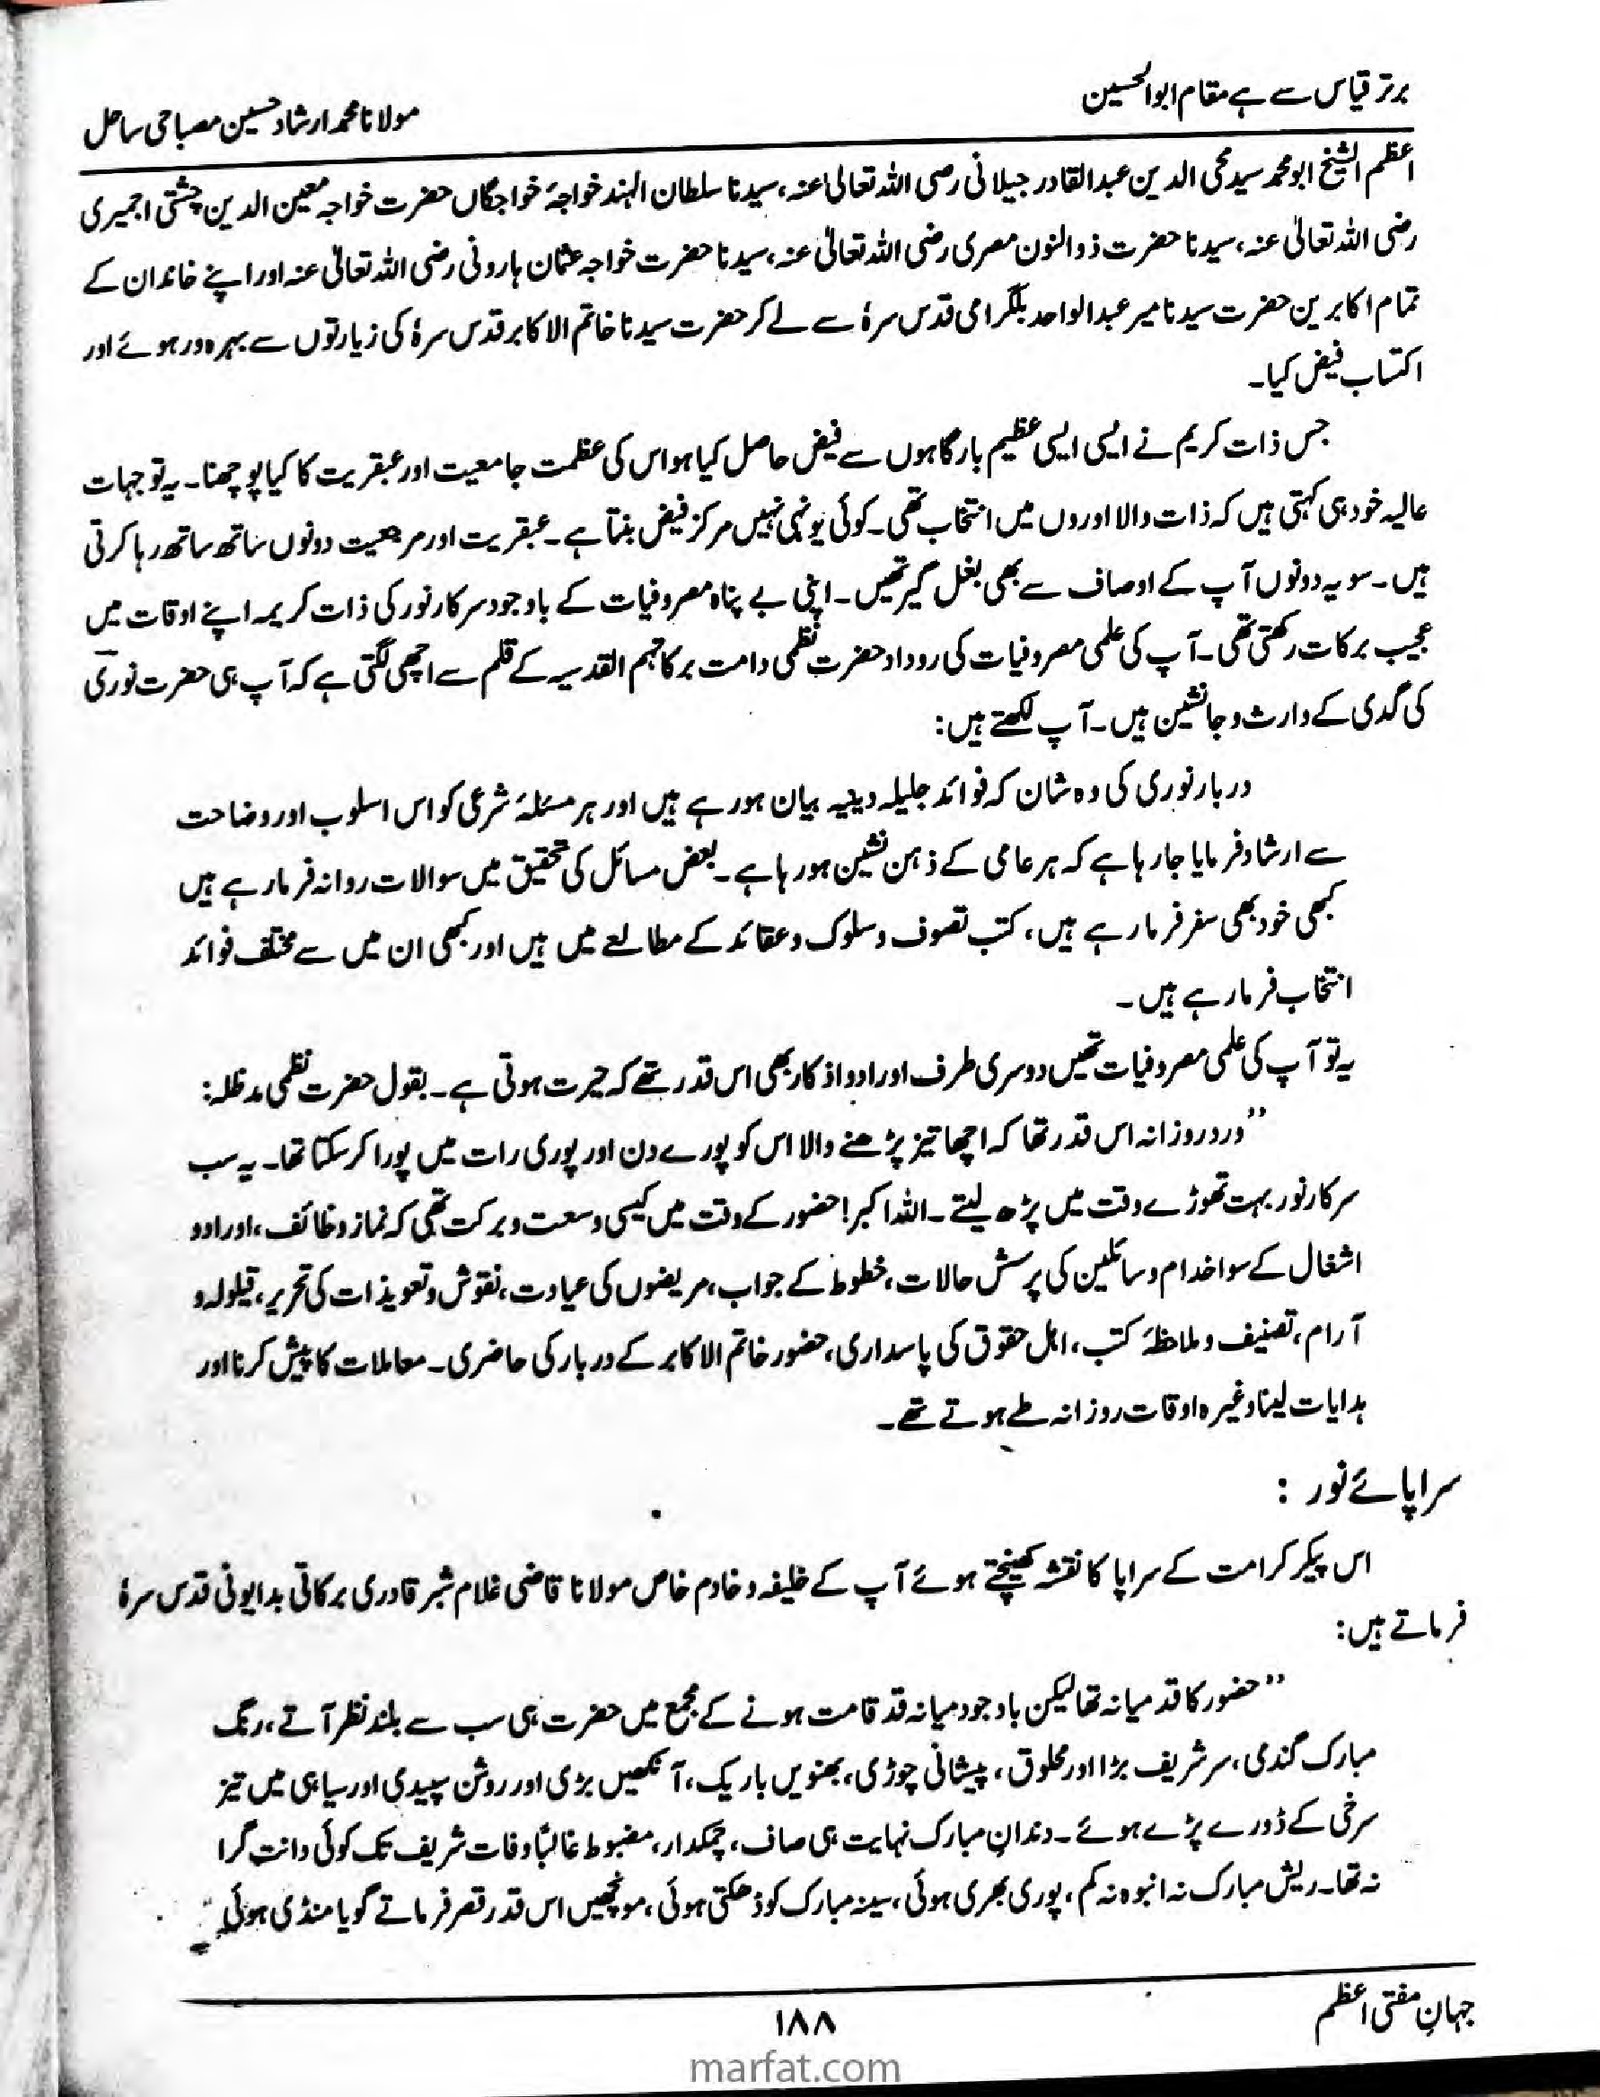 برتر قیاس سے ہے مقام ابوالحسین
مولانا محمد ارشاد حسین مصباحی ساحل
اعظم الشیخ ابو محمد سید محی الدین عبدالقادر جیلانی رضی اللہ تعالیٰ عنہ، سیدنا سلطان الہند خواجۂ خواجگاں حضرت خواجہ معین الدین چشتی اجمیری
رضی اللہ تعالیٰ عنہ، سیدنا حضرت ذوالنون مصری رضی اللہ تعالیٰ عنہ، سیدنا حضرت خواجہ عثمان ہارونی رضی اللہ تعالیٰ عنہ اور اپنے خاندان کے
تمام اکابرین حضرت سیدنا میر عبدالواحد بلگرامی قدس سرہٗ سے لے کر حضرت سیدنا خاتم الاکابر قدس سرہٗ کی زیارتوں سے بہرہ ور ہوئے اور
اکتساب فیض کیا۔
جس ذات کریم نے ایسی ایسی عظیم بارگاہوں سے فیض حاصل کیا ہو اس کی عظمت جامعیت اور عبقریت کا کیا پوچھنا۔ یہ توجہات
عالیہ خود ہی کہتی ہیں کہ ذات والا اوروں میں انتخاب تھی۔ کوئی یونہی نہیں مرکز فیض بنتا ہے۔ عبقریت اور مرجعیت دونوں ساتھ ساتھ رہا کرتی
ہیں۔ سو یہ دونوں آپ کے اوصاف سے بھی بغل گیر تھیں۔ اپنی بے پناہ مصروفیات کے باوجود سرکار نور کی ذات کریمہ اپنے اوقات میں
عجیب برکات رکھتی تھی۔ آپ کی علمی مصروفیات کی روداد حضرت نظمی دامت برکاتہم القدسیہ کے قلم سے اچھی لگتی ہے کہ آپ ہی حضرت نوری
کی گدی کے وارث و جانشین ہیں۔ آپ لکھتے ہیں:
دربار نوری کی وہ شان کہ فوائد جلیلہ دینیہ بیان ہو رہے ہیں اور ہر مسئلۂ شرعی کو اس اسلوب اور وضاحت
سے ارشاد فرمایا جا رہا ہے کہ ہر عامی کے ذہن نشین ہو رہا ہے۔ بعض مسائل کی تحقیق میں سوالات روانہ فرما رہے ہیں
کبھی خود بھی سفر فرما رہے ہیں، کتب تصوف و سلوک و عقائد کے مطالعے میں ہیں اور کبھی ان میں سے مختلف فوائد
انتخاب فرما رہے ہیں۔
یہ تو آپ کی علمی مصروفیات تھیں دوسری طرف اوراد و اذکار بھی اس قدر تھے کہ حیرت ہوتی ہے۔ بقول حضرت نظمی مدظلہ:
”ورد روزانہ اس قدر تھا کہ اچھا تیز پڑھنے والا اس کو پورے دن اور پوری رات میں پورا کر سکتا تھا۔ یہ سب
سرکار نور بہت تھوڑے وقت میں پڑھ لیتے۔ اللہ اکبر! حضور کے وقت میں کیسی وسعت و برکت تھی کہ نماز و وظائف، اوراد و
اشغال کے سوا خدام و سائلین کی پرسش حالات، خطوط کے جواب، مریضوں کی عیادت، نقوش و تعویذات کی تحریر، قیلولہ و
آرام، تصنیف و ملاحظۂ کتب، اہل حقوق کی پاسداری، حضور خاتم الاکابر کے دربار کی حاضری۔ معاملات کا پیش کرنا اور
ہدایات لینا وغیرہ اوقات روزانہ طے ہوتے تھے۔
سراپائے نور :
اس پیکر کرامت کے سراپا کا نقشہ کھینچتے ہوئے آپ کے خلیفہ و خادم خاص مولانا قاضی غلام شبر قادری برکاتی بدایونی قدس سرہٗ
فرماتے ہیں:
”حضور کا قد میانہ تھا لیکن باوجود میانہ قد قامت ہونے کے مجمع میں حضرت ہی سب سے بلند نظر آتے، رنگ
مبارک گندمی، سر شریف بڑا اور محلوق، پیشانی چوڑی، بھنویں باریک، آنکھیں بڑی اور روشن سپیدی اور سیاہی میں تیز
سرخی کے ڈورے پڑے ہوئے۔ دندان مبارک نہایت ہی صاف، چمکدار، مضبوط غالباً وفات شریف تک کوئی دانت گرا
نہ تھا۔ ریش مبارک نہ انبوہ نہ کم، پوری بھری ہوئی، سینہ مبارک کو ڈھکتی ہوئی، مونچھیں اس قدر قصر فرماتے گویا منڈی ہوئی
جہانِ مفتی اعظم
۱۸۸
marfat.com